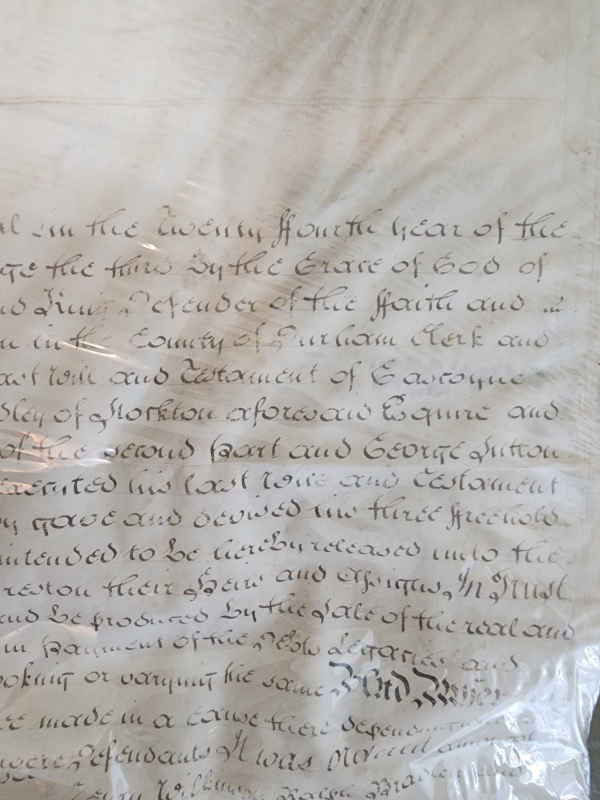 in the Twenty ffourth year of the
the third By the Grace of God of
King Defender of the ffaith and
in the County of Durham Clerk and
last Will and Testament of Gascoyne
of Stockton aforesaid Esquire and
of the Second Part and George Sutton
executed his last Will and Testament
gave and devised his three ffreehold
intended to be hereby released unto the
their Heirs and Assigns In Trust
and be produced By the Sale of the real and
in Payment of the Debts Legacies and
or varying the same And
made in a Cause there depending
were Defendants It was